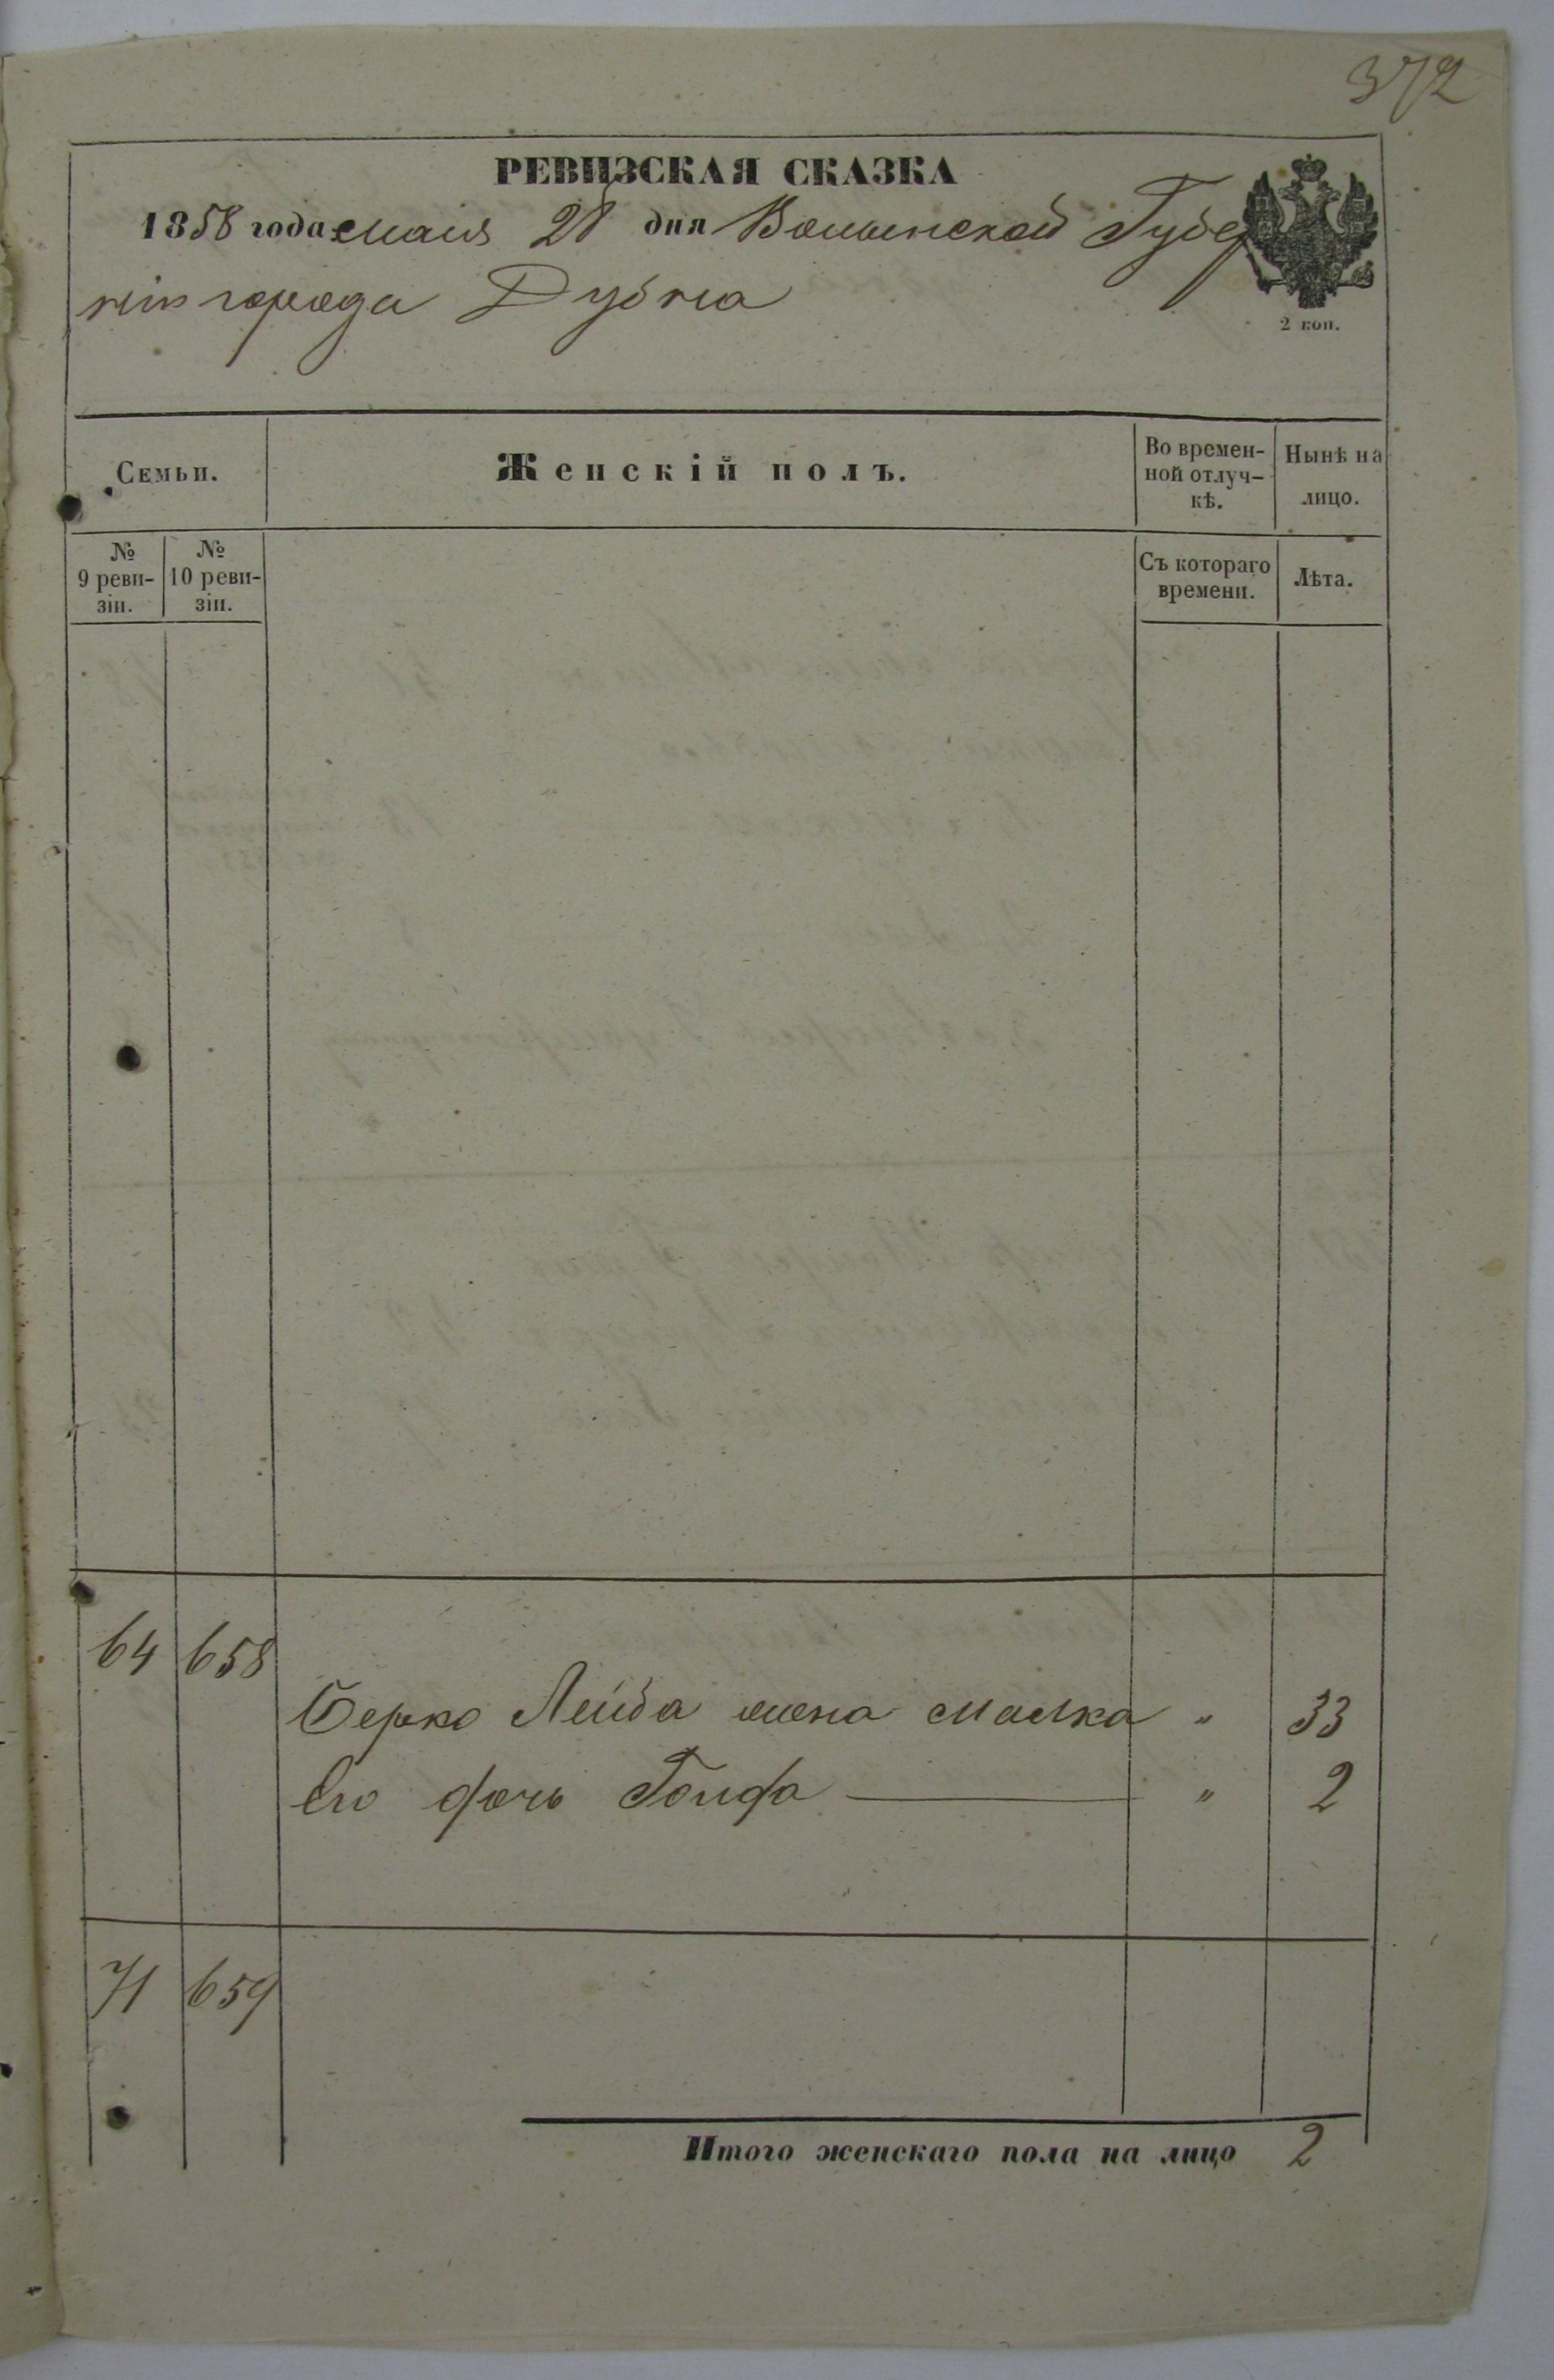 372
РЕВИЗСКАЯ СКАЗКА
1858 года маія 28 дня Волынской Губер
ніи города Дубна
2 коп.
Семьи.
Женскій полъ.
Во времен-
ной отлуч-
кѣ.
Нынѣ на
лицо.
№
9 реви-
зіи.
№
10 реви-
зіи.
Съ котораго
времени.
Лѣта.
64 658
Берко Лейба жена Малка " 33
Его дочь Голда " 2
71 659
Итого женскаго пола на лицо 2